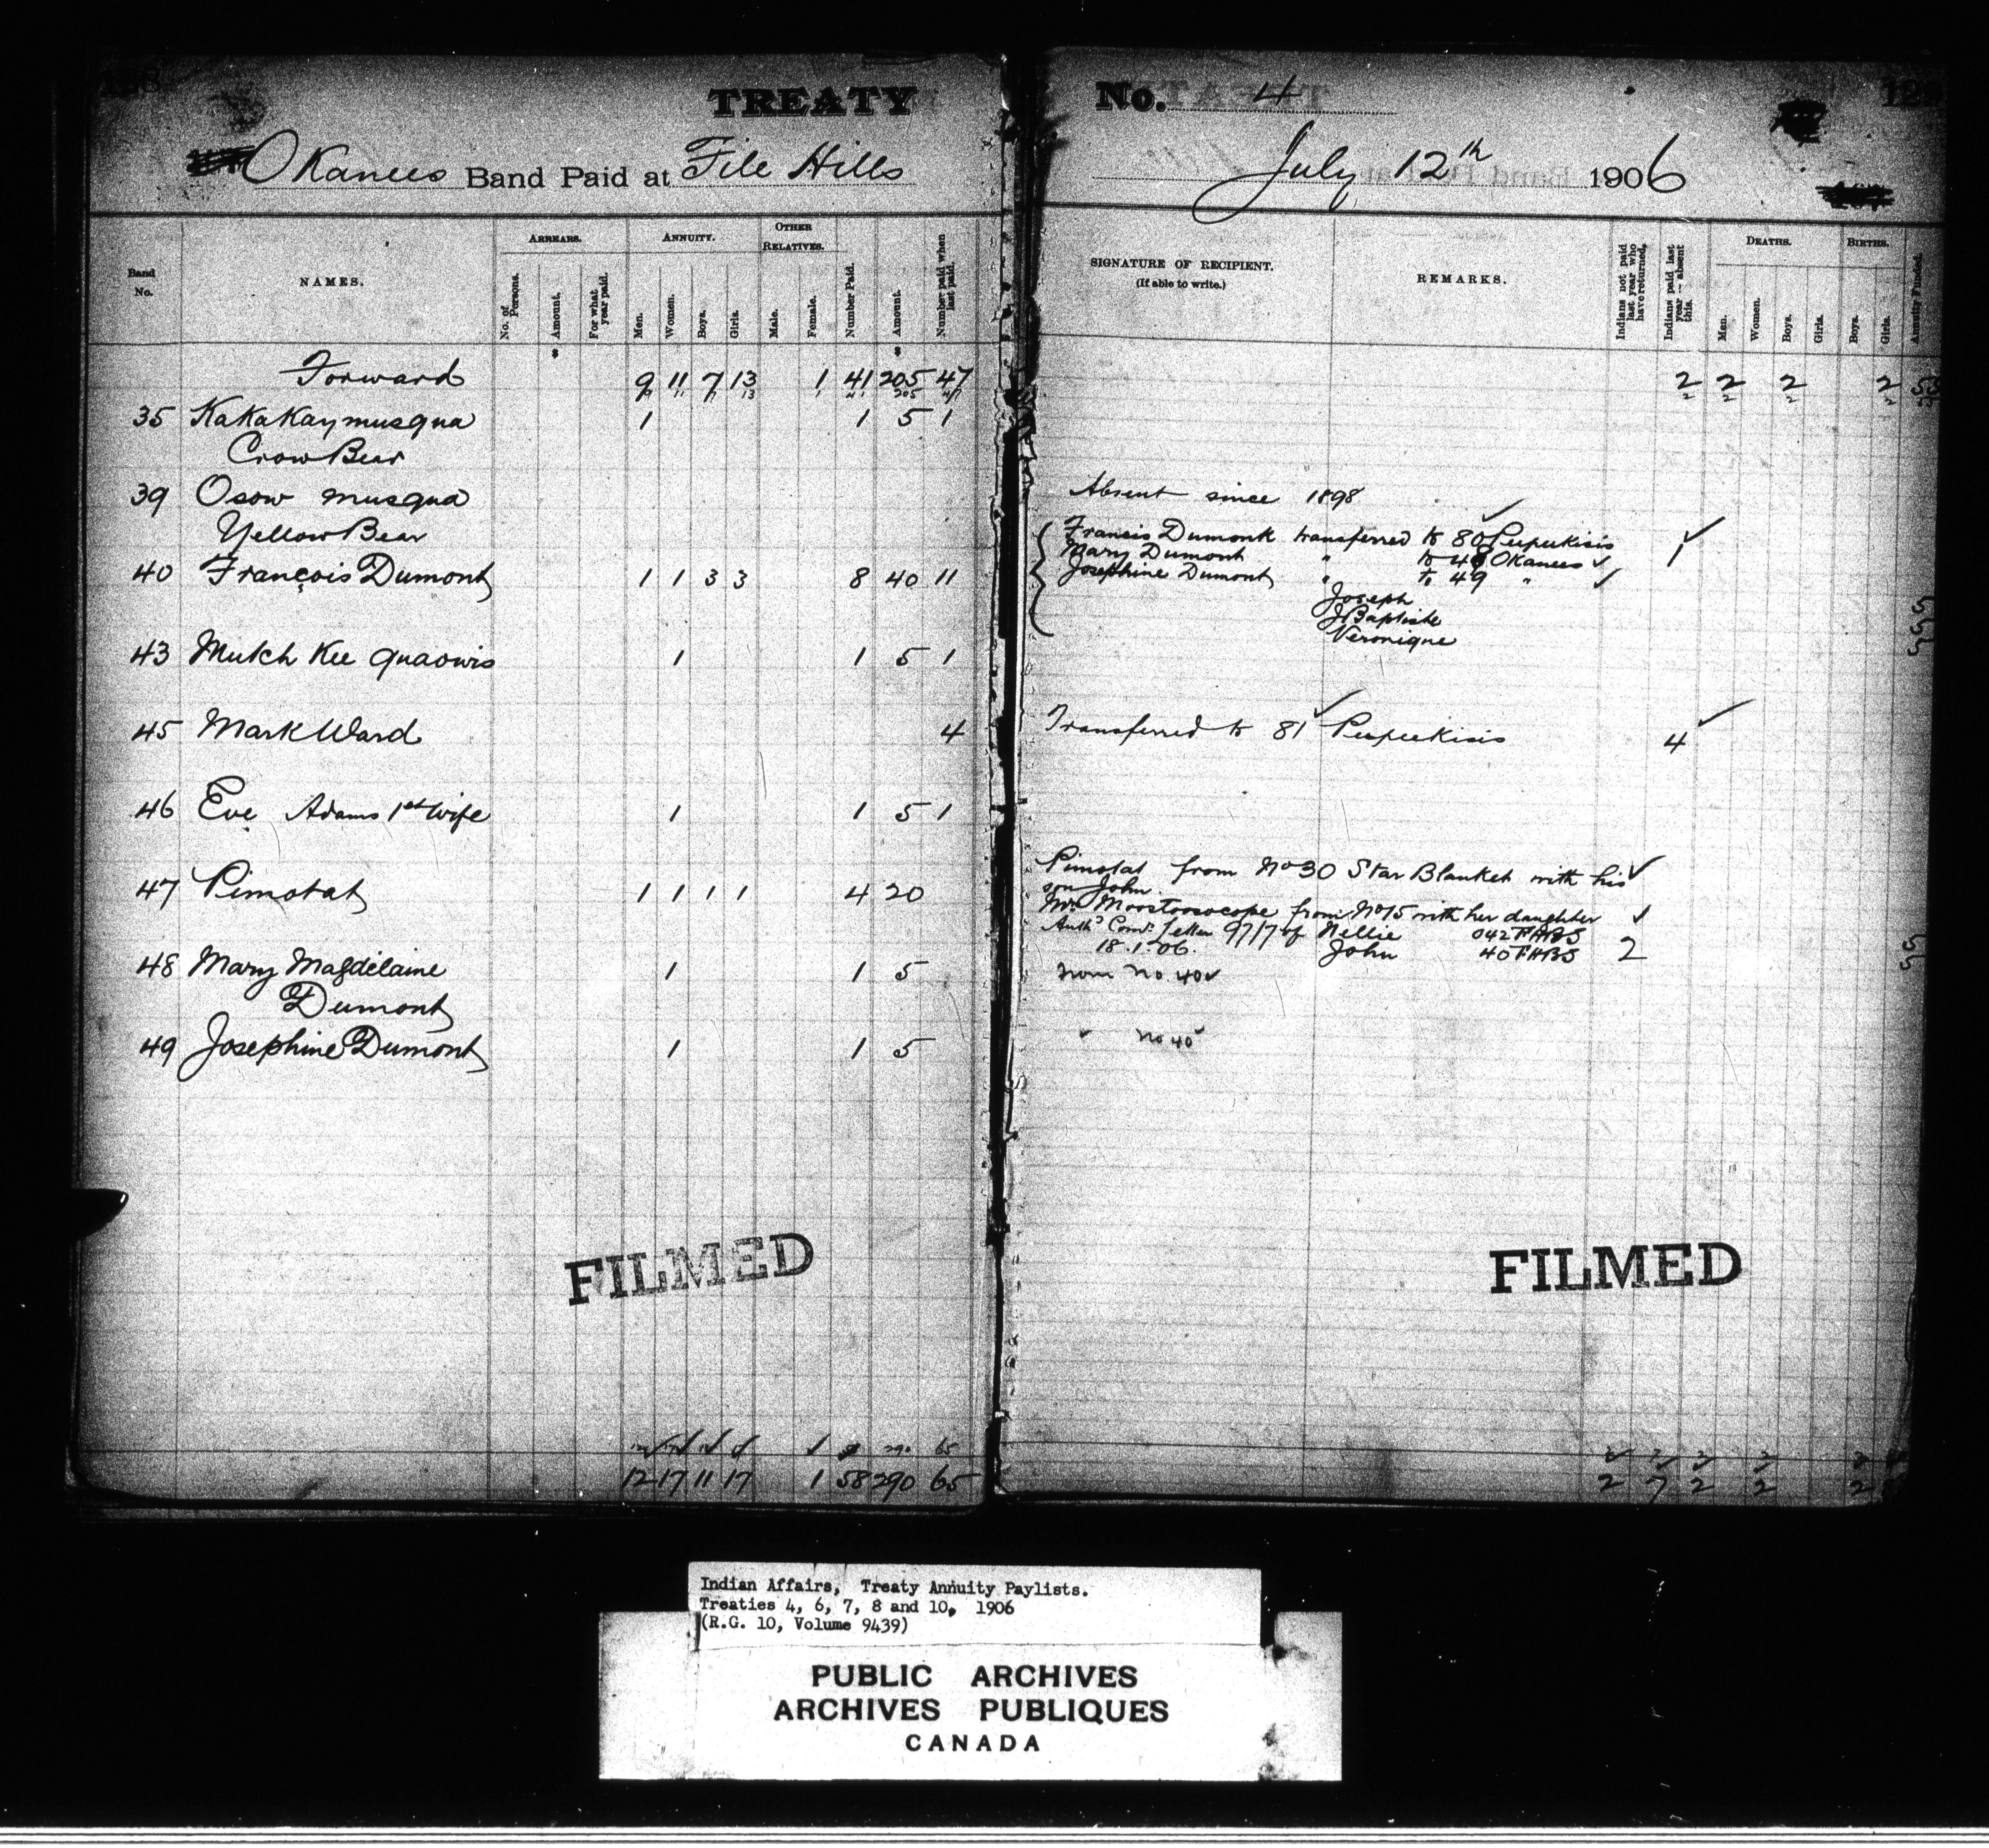 128
TREATY
Okanees Band Paid at File Hills
Band No.
NAMES.
ARREARS.
No. of Persons.
Amount.
For what year paid.
ANNUITY.
Men.
Women.
Boys.
Girls.
OTHER RELATIVES.
Male.
Female.
Number Paid.
Amount.
Number paid when last paid.
Forward 9 11 7 13 1 41 205 47
35 Kakakaymusqua 1 1 5 1
Crow Bear
39 Osow musqua
Yellow Bear
40 François Dumont 1 1 3 3 8 40 11
43 Mutch Kee quaowis 1 1 5 1
45 Mark Ward 4
46 Eve Adams 1st wife 1 1 5 1
47 Pimotat 1 1 1 1 4 20
48 Mary Magdelaine 1 1 5
Dumont
49 Josephine Dumont 1 1 5
FILMED
12 17 11 17 1 58 290 65
No. 4
129
July 12th 1906
SIGNATURE OF RECIPIENT.
(If able to write.)
REMARKS.
Indians not paid last year who have returned.
Indians paid last year—absent this.
DEATHS.
Men.
Women.
Boys.
Girls.
BIRTHS.
Boys.
Girls.
Annuity Funded.
2 2 2 2
Absent since 1898
Francis Dumont transferred to 80 Peepeekisis 1
Mary Dumont " to 48 Okanees
Josephine Dumont " to 49 "
Joseph
J Baptiste
Veronique
Transferred to 81 Peepeekisis 4
Pimotat from No 30 Star Blanket with his
son John.
Mrs Moostoosocope from No 15 with her daughter
Auth Comr. Letter 97/7 of Nellie 042 FHBS
18.1.06. John 40 FHBS 2
from no. 40
" no 40
FILMED
2 7 2 2 2
Indian Affairs, Treaty Annuity Paylists.
Treaties 4, 6, 7, 8 and 10, 1906
(R.G. 10, Volume 9439)
PUBLIC ARCHIVES
ARCHIVES PUBLIQUES
CANADA